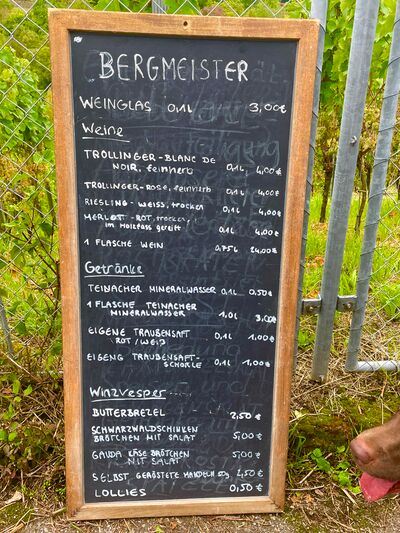 BERGMEISTER
WEINGLAS 0,1L 3,00€
Weine
TROLLINGER-BLANC DE
NOIR, feinherb 0,1L 4,00€
TROLLINGER-ROSE, feinherb 0,1L 4,00€
RIESLING-WEISS, trocken 0,1L 4,00€
MERLOT-ROT, trocken,
im Holzfass gereift 0,1L 4,00€
1 FLASCHE WEIN 0,75L 24,00€
Getränke
TEINACHER MINERALWASSER 0,1L 0,50€
1 FLASCHE TEINACHER
MINERALWASSER 1,0L 3,00€
EIGENE TRAUBENSAFT
ROT/WEIß 0,1L 1,00€
EIGENG TRAUBENSAFT-
SCHORLE 0,1L 1,00€
Winzvesper
BUTTERBREZEL 2,50€
SCHWARZWALDSCHINKEN
BRÖTCHEN MIT SALAT 5,00€
GAUDA KÄSE BRÖTCHEN
MIT SALAT 5,00€
SELBST GERÖSTETE MANDELN 50g 4,50€
LOLLIES 0,50€